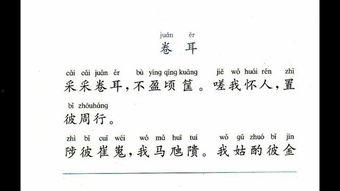 juǎn ěr
卷耳
cǎi cǎi juǎn ěr bù yíng qǐng kuāng jiē wǒ huái rén zhì
采采卷耳，不盈顷筐。嗟我怀人，置
bǐ zhōu háng
彼周行。
zhì bǐ cuī wéi wǒ mǎ huī tuí wǒ gū zhuó bǐ jīn
陟彼崔嵬，我马虺隤。我姑酌彼金